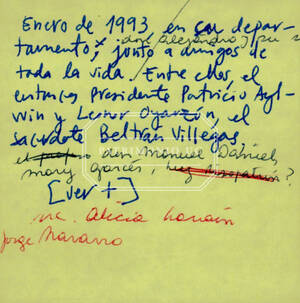 Enero de 1993, en su depar-
tamento, junto a amigos de
don Alejandro, su
toda la vida. Entre ellos, el
entonces Presidente Patricio Ayl-
win y Leonor Oyarzún, el
sacerdote Beltrán Villegas,
don Manuel Daniel,
Mary Garcés, ?
[ver +]
Alicia
Jorge Navarro